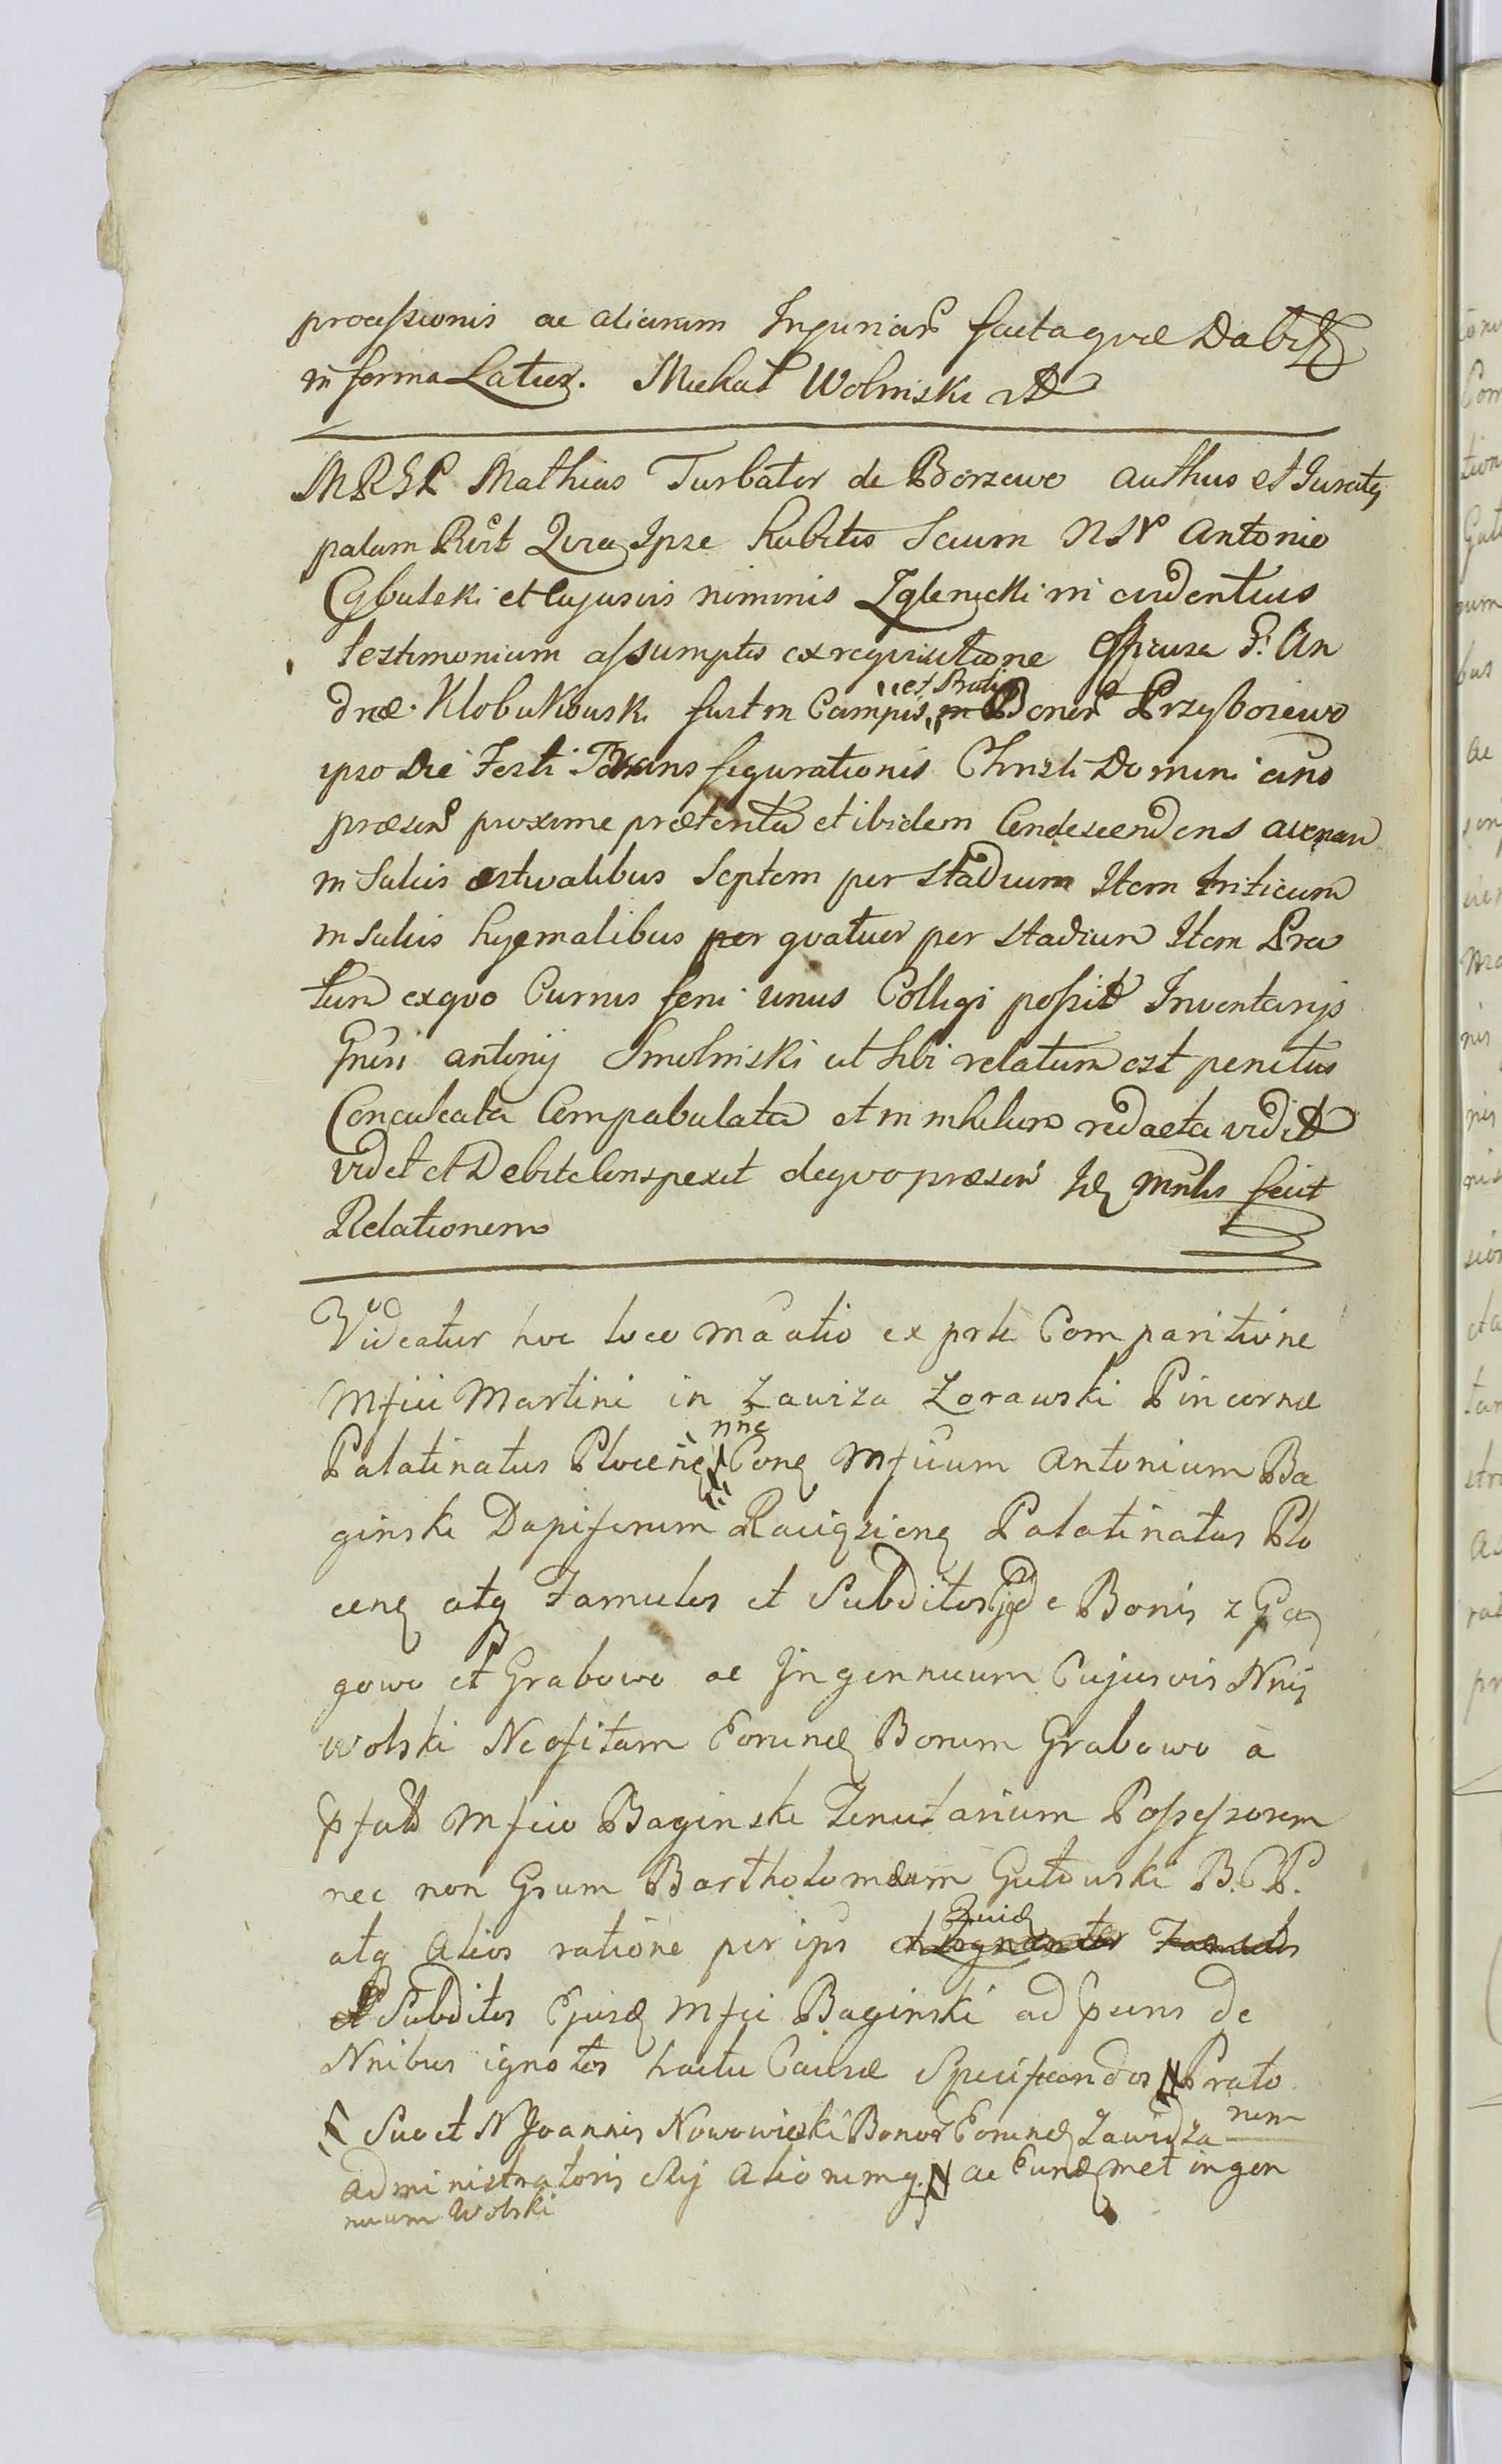 processionis ac aliarum Injuriar factaque Dabit
in forma Latior. Michał Wolinski
MRGR Mathias Turbator de Borzewo authus et Juratq
palam Rcit Quia Ipse habitis secum NN Antonio
Cybulski et cujusvis nominis Zglenicki in evidentius
testimonium assumptis ex requisitione officiosa G. An
dreæ Klobukowski fuit in Campis et Pratis in Bonor Przyborewo
ipso Die Festi Transfigurationis Christi Domini ano
præsen proxime præterita et ibidem Condescendens avenam
in Sulcis æstivalibus Septem per stadium Item triticum
in Sulcis hyemalibus per quatuor per stadium Item Pra
tum ex quo Currus feni unus Colligi possit Inventarijs
Gnosi Antonij Smolinski ut sibi relatum est penitus
Conculcata Compabulata et in nihilum redacta vidit
videt et Debite Conspexit de quo præsen Id mnlis fecit
Relationem
Videatur hoc loco maatio ex prte Comparitione
Mfici Martini in Zawiza Zorawski Pincernæ
Palatinatus Plocen nne Cone Mficum Antonium Ba
ginski Dapiferum Raciązien Palatinatus Plo
cen atq Famulos et Subditos de Bonis z Ga
gowo et Grabowo ac Ingennuum Cujusvis Nnis
Wolski Neofitam Eorund Bonum Grabowo à
pfato Mfico Baginski Tenutarium Possessorem
nec non Gsum Bartholomæum Gutowski B.C.P.
atq Alios ratione per ips Quid et Cognantos Famulos
et Subditos Ejusd Mfci Baginski ad psens de
Nnibus ignotos hactu Causæ Specificandos N Prato
N Suo et N Joannis Nowowieski Bonor Eorund Zawidza
administratoris Aliorumq N ac Eund met ingen
nuum Wolski